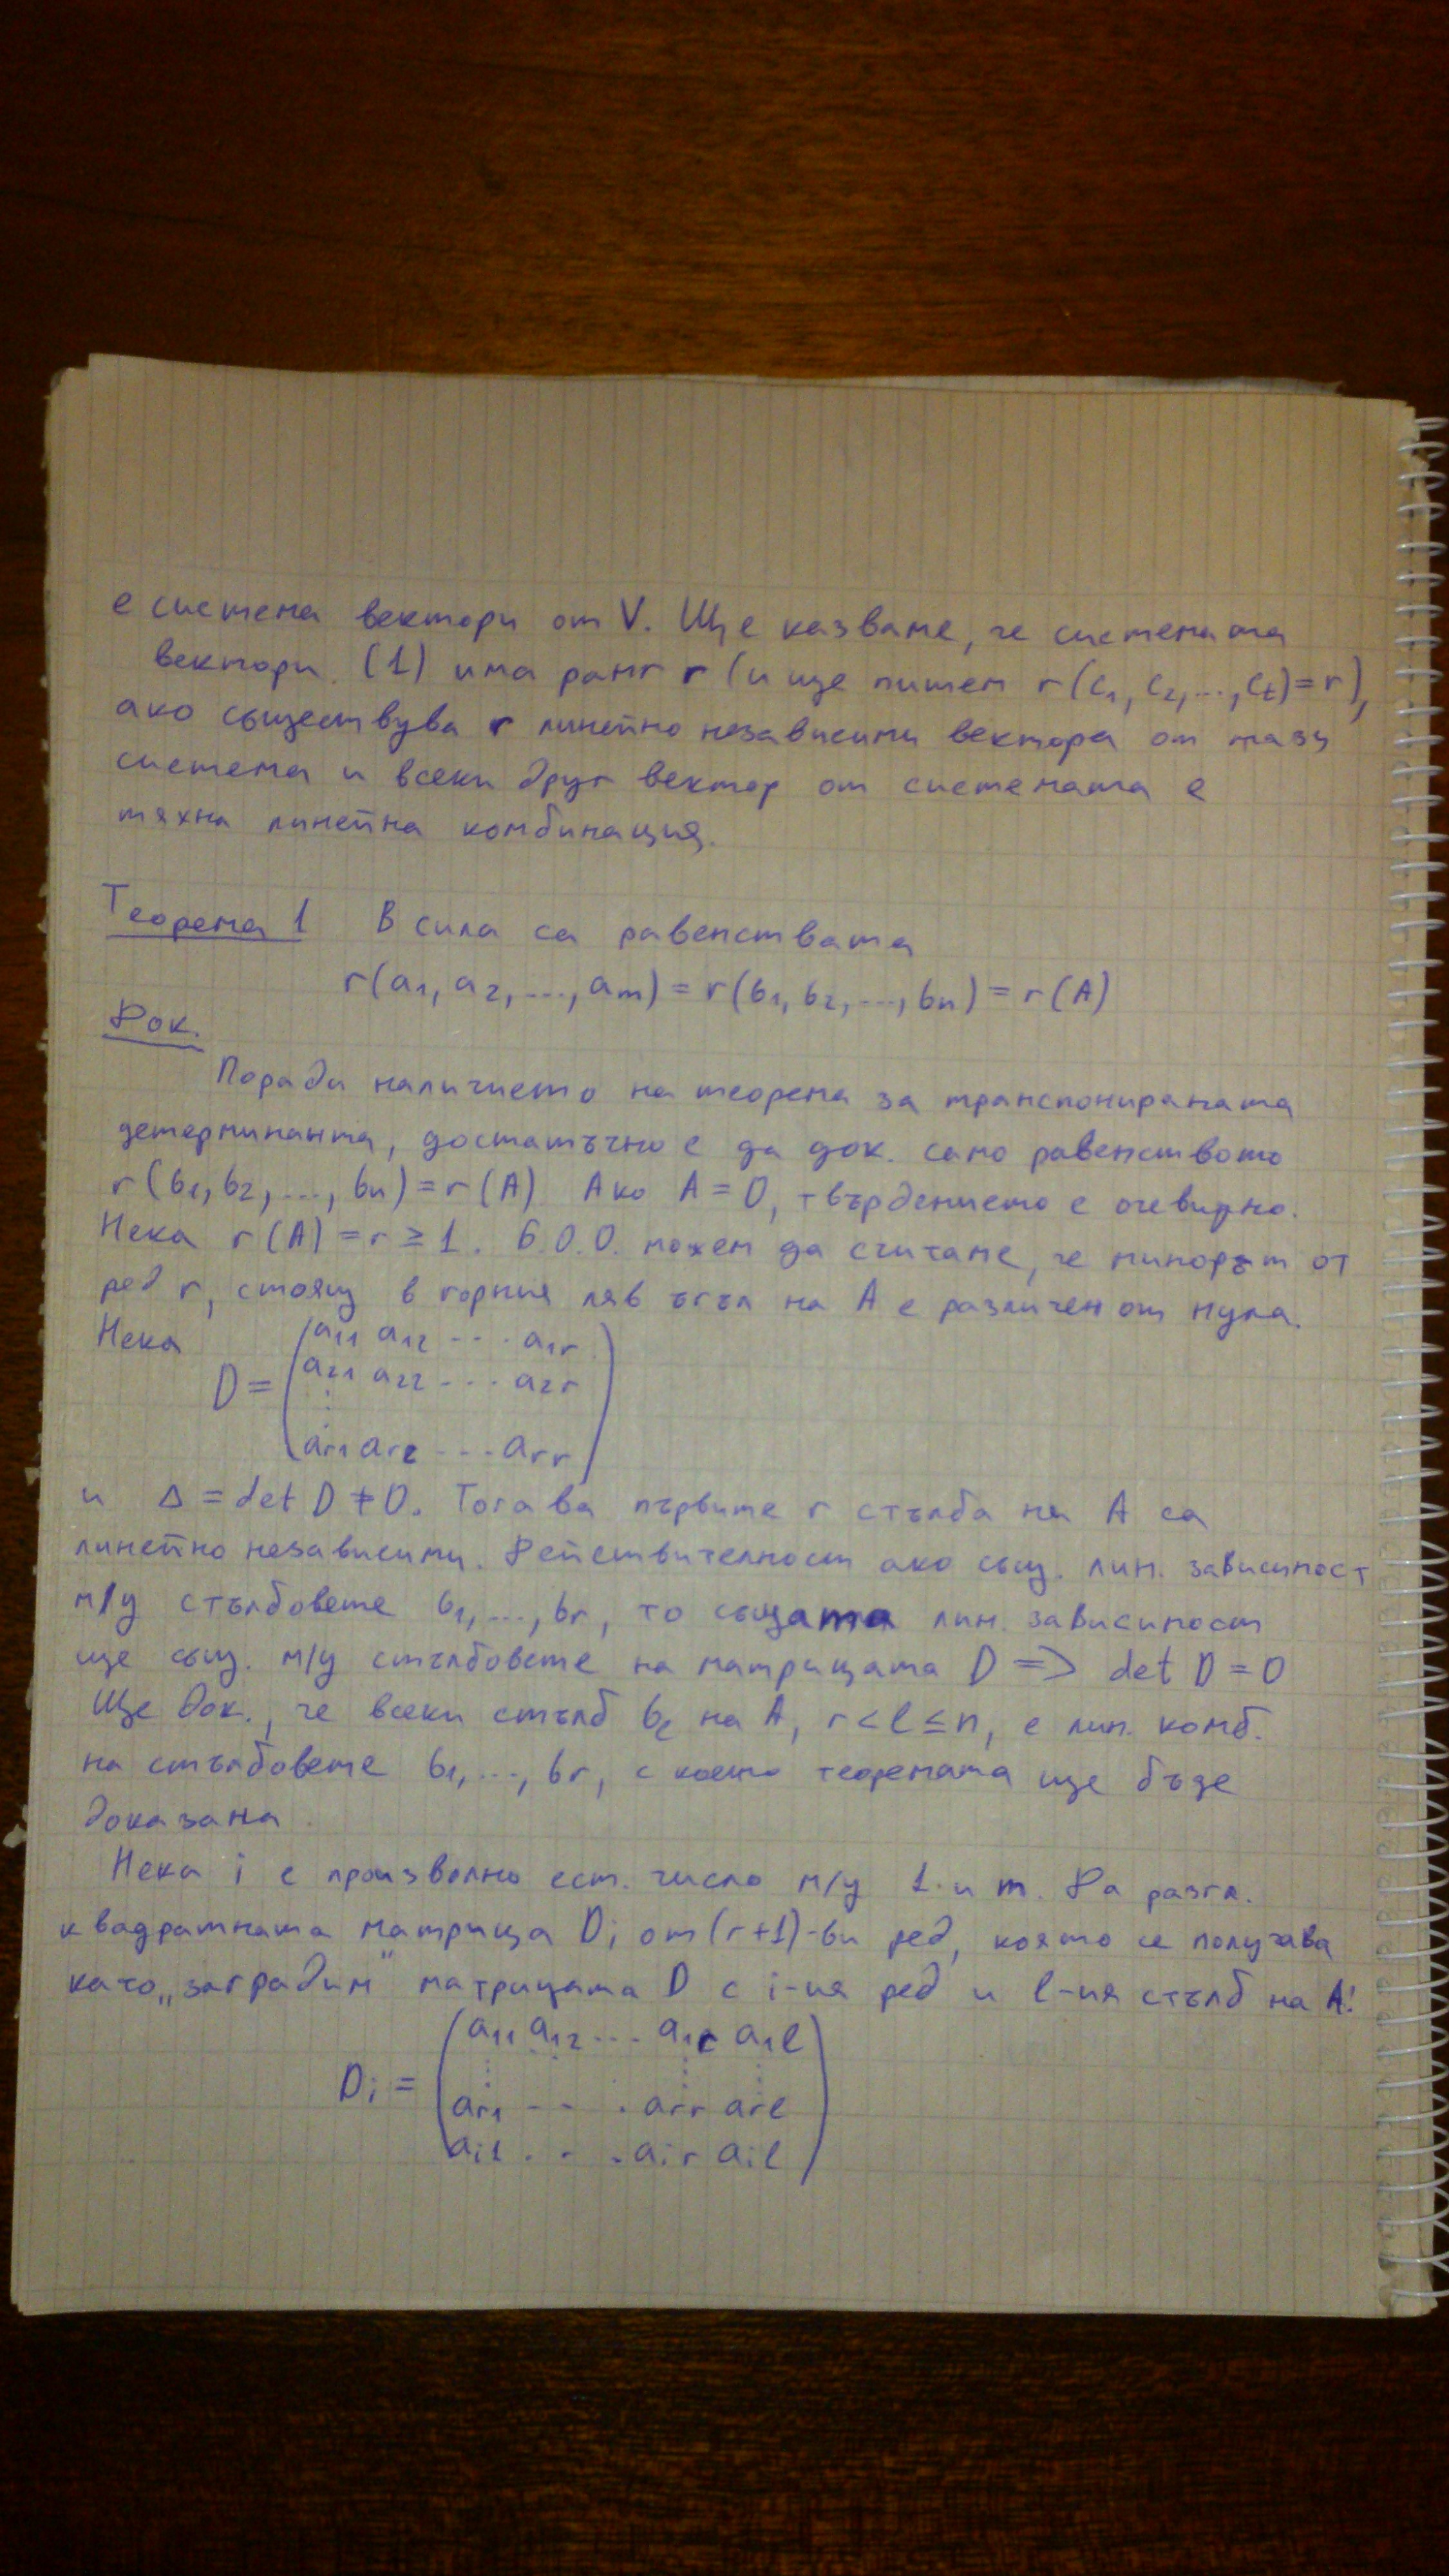 е система вектори от V. Ще казваме, че системата
вектори (1) има ранг r (и ще пишем r(c₁, c₂, ..., cₜ) = r),
ако съществува r линейно независими вектора от тази
система и всеки друг вектор от системата е
тяхна линейна комбинация.
Теорема 1 В сила са равенствата
r(a₁, a₂, ..., aₘ) = r(b₁, b₂, ..., bₙ) = r(A)
Док.
Поради наличието на теорема за транспонираната
детерминанта, достатъчно е да док. само равенството
r(b₁, b₂, ..., bₙ) = r(A) Ако A = 0, твърдението е очевидно.
Нека r(A) = r ≥ 1. Б.О.О. можем да считаме, че минорът от
ред r, стоящ в горния ляв ъгъл на A е различен от нула.
Нека
a₁₁ a₁₂ ... a₁ᵣ
D = a₂₁ a₂₂ ... a₂ᵣ
⋮
aᵣ₁ aᵣ₂ ... aᵣᵣ
и Δ = det D ≠ 0. Тогава първите r стълба на A са
линейно независими. Действителност ако същ. лин. зависимост
м/у стълбовете b₁, ..., bᵣ, то същата лин. зависимост
ще същ. м/у стълбовете на матрицата D => det D = 0
Ще док., че всеки стълб bₗ на A, r < l ≤ n, е лин. комб.
на стълбовете b₁, ..., bᵣ, с което теоремата ще бъде
доказана.
Нека i е произволно ест. число м/у 1 и m. Да разгл.
квадратната матрица Dᵢ от (r+1)-ви ред, която се получава
като „заградим" матрицата D с i-ия ред и l-ия стълб на A:
a₁₁ a₁₂ ... a₁ᵣ a₁ₗ
Dᵢ = ⋮ ⋮ ⋮
aᵣ₁ ... aᵣᵣ aᵣₗ
aᵢ₁ ... aᵢᵣ aᵢₗ